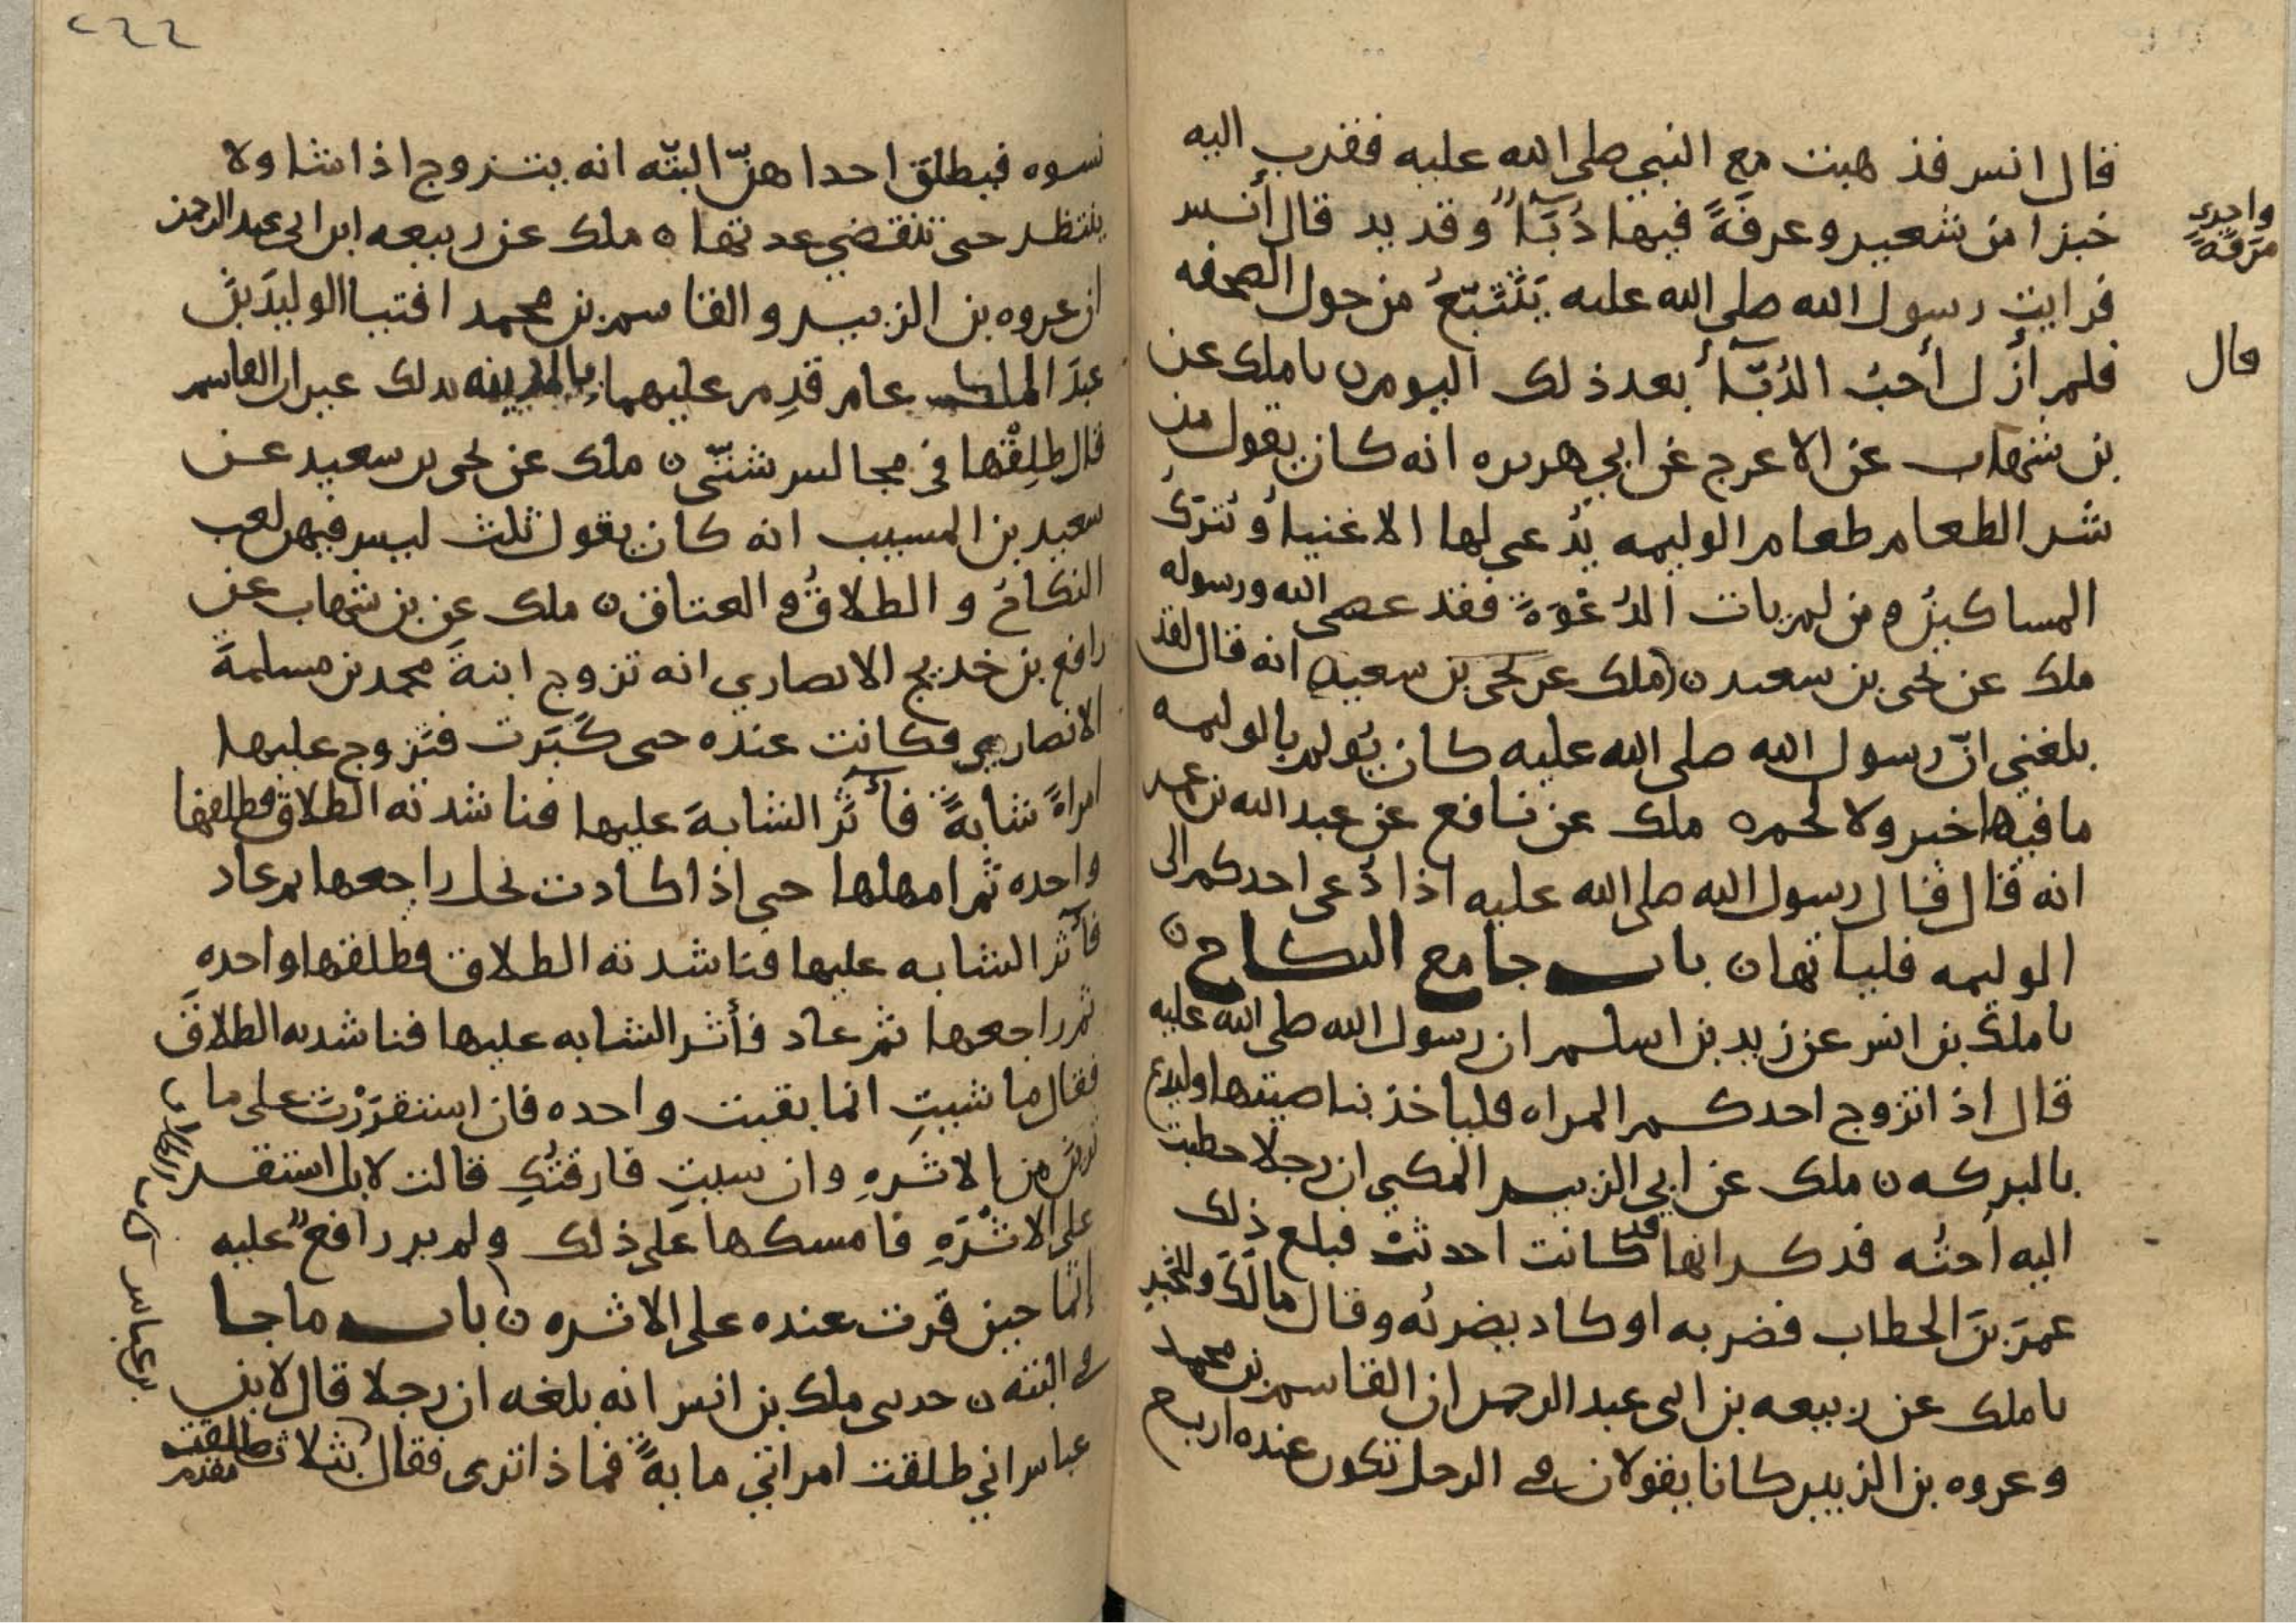 قال انس فذهبت مع النبي صلى الله عليه فقرب اليه
خبزا من شعير وعرفةً فيها دُبّآءٌ وقديد قال أنس
فرايت رسول الله صلى الله عليه يَتَتَبّعُ من حول الصحفه
فلم أزل أحبُ الدُبّآءَ بعد ذلك اليوم ن نا ملك عن
بن شهاب عن الاعرج عن ابي هريره انه كان يقول من
شر الطعام طعام الوليمه يُدعى لها الاغنيأُ وتُتركُ
المساكينُ ومن لم يات الدُعْوَةَ فقد عصى الله ورسوله
ملك عن يحيى بن سعيد ن (ملك عن يحيى بن سعيد) انه قال لقد
بلغني انّ رسول الله صلى الله عليه كان يُولم بالوليمه
ما فيها خبز ولا لحم ه ملك عن نافع عن عبد الله بن عمر
انه قال قال رسول الله صلى الله عليه اذا دُعي احدكم الى
الوليمه فلياتها ن باب جامع النكاح ن
نا ملك بن انس عن زيد بن اسلم ان رسول الله صلى الله عليه
قال اذا تزوج احدكم المراه فلياخذ بناصيتها وليدع
بالبركه ن ملك عن ابي الزبير المكي ان رجلا خطبت
اليه أختُه فذكر انها قد كانت احدثتْ فبلغ ذلك
عمرَ بنَ الخطاب فضربه او كاد يضربُه وقال مالَكَ وللخبر
نا ملك عن ربيعه بن ابي عبد الرحمن ان القاسم بن محمد
وعروه بن الزبير كانا يقولان في الرجل تكون عنده اربع
واخرى
مَرَقَةً
قال
٢٤٤
نسوه فيطلق احداهنّ البتّه انه يتزوج اذا شا ولا
ينتظر حتى تنقضي عدتها ن ملك عن ربيعه ابن ابي عبد الرحمن
ان عروه بن الزبير والقاسم بن محمد افتيا الوليدَ بنَ
عبدَ الملك عام قدِم عليهما بالمدينه بذلك غير ان القاسم
قال طلِقْها في مجالس شتّى ن ملك عن يحيى بن سعيد عن
سعيد بن المسيب انه كان يقول ثلث ليس فيهن لعب
النكاحُ والطلاقُ والعتاق ن ملك عن بن شهاب عن
رافع بن خديج الانصاري انه تزوج ابنةَ محمد بن مسلمةَ
الانصاري فكانت عنده حتى كَبَرت فتزوج عليها
امراةً شابةً فأثَر الشابةَ عليها فناشدته الطلاق فطلقها
واحده ثم امهلها حتى اذا كادت تحل راجعها ثم عاد
فآثر الشابه عليها فناشدته الطلاق فطلقها واحدهِ
ثم راجعها ثم عاد فأثر الشابه عليها فناشدته الطلاقَ
فقال ما شيتِ انما بقيت واحده فان استقرَرْتَ على ما
ترين من الاثرهِ وان شيتِ فارقتُكِ قالت لا بل استقر
على الاثْرَهِ فامسكها على ذلك ولم ير رافع عليه
إثما حين قرت عنده على الاثره ن باب ما جا
في البته ن حدثني ملك بن انس انه بلغه ان رجلا قال لابن
عباس اني طلقت امراتي مايةً فماذا ترى فقال بثلاث طلقت
مقدم